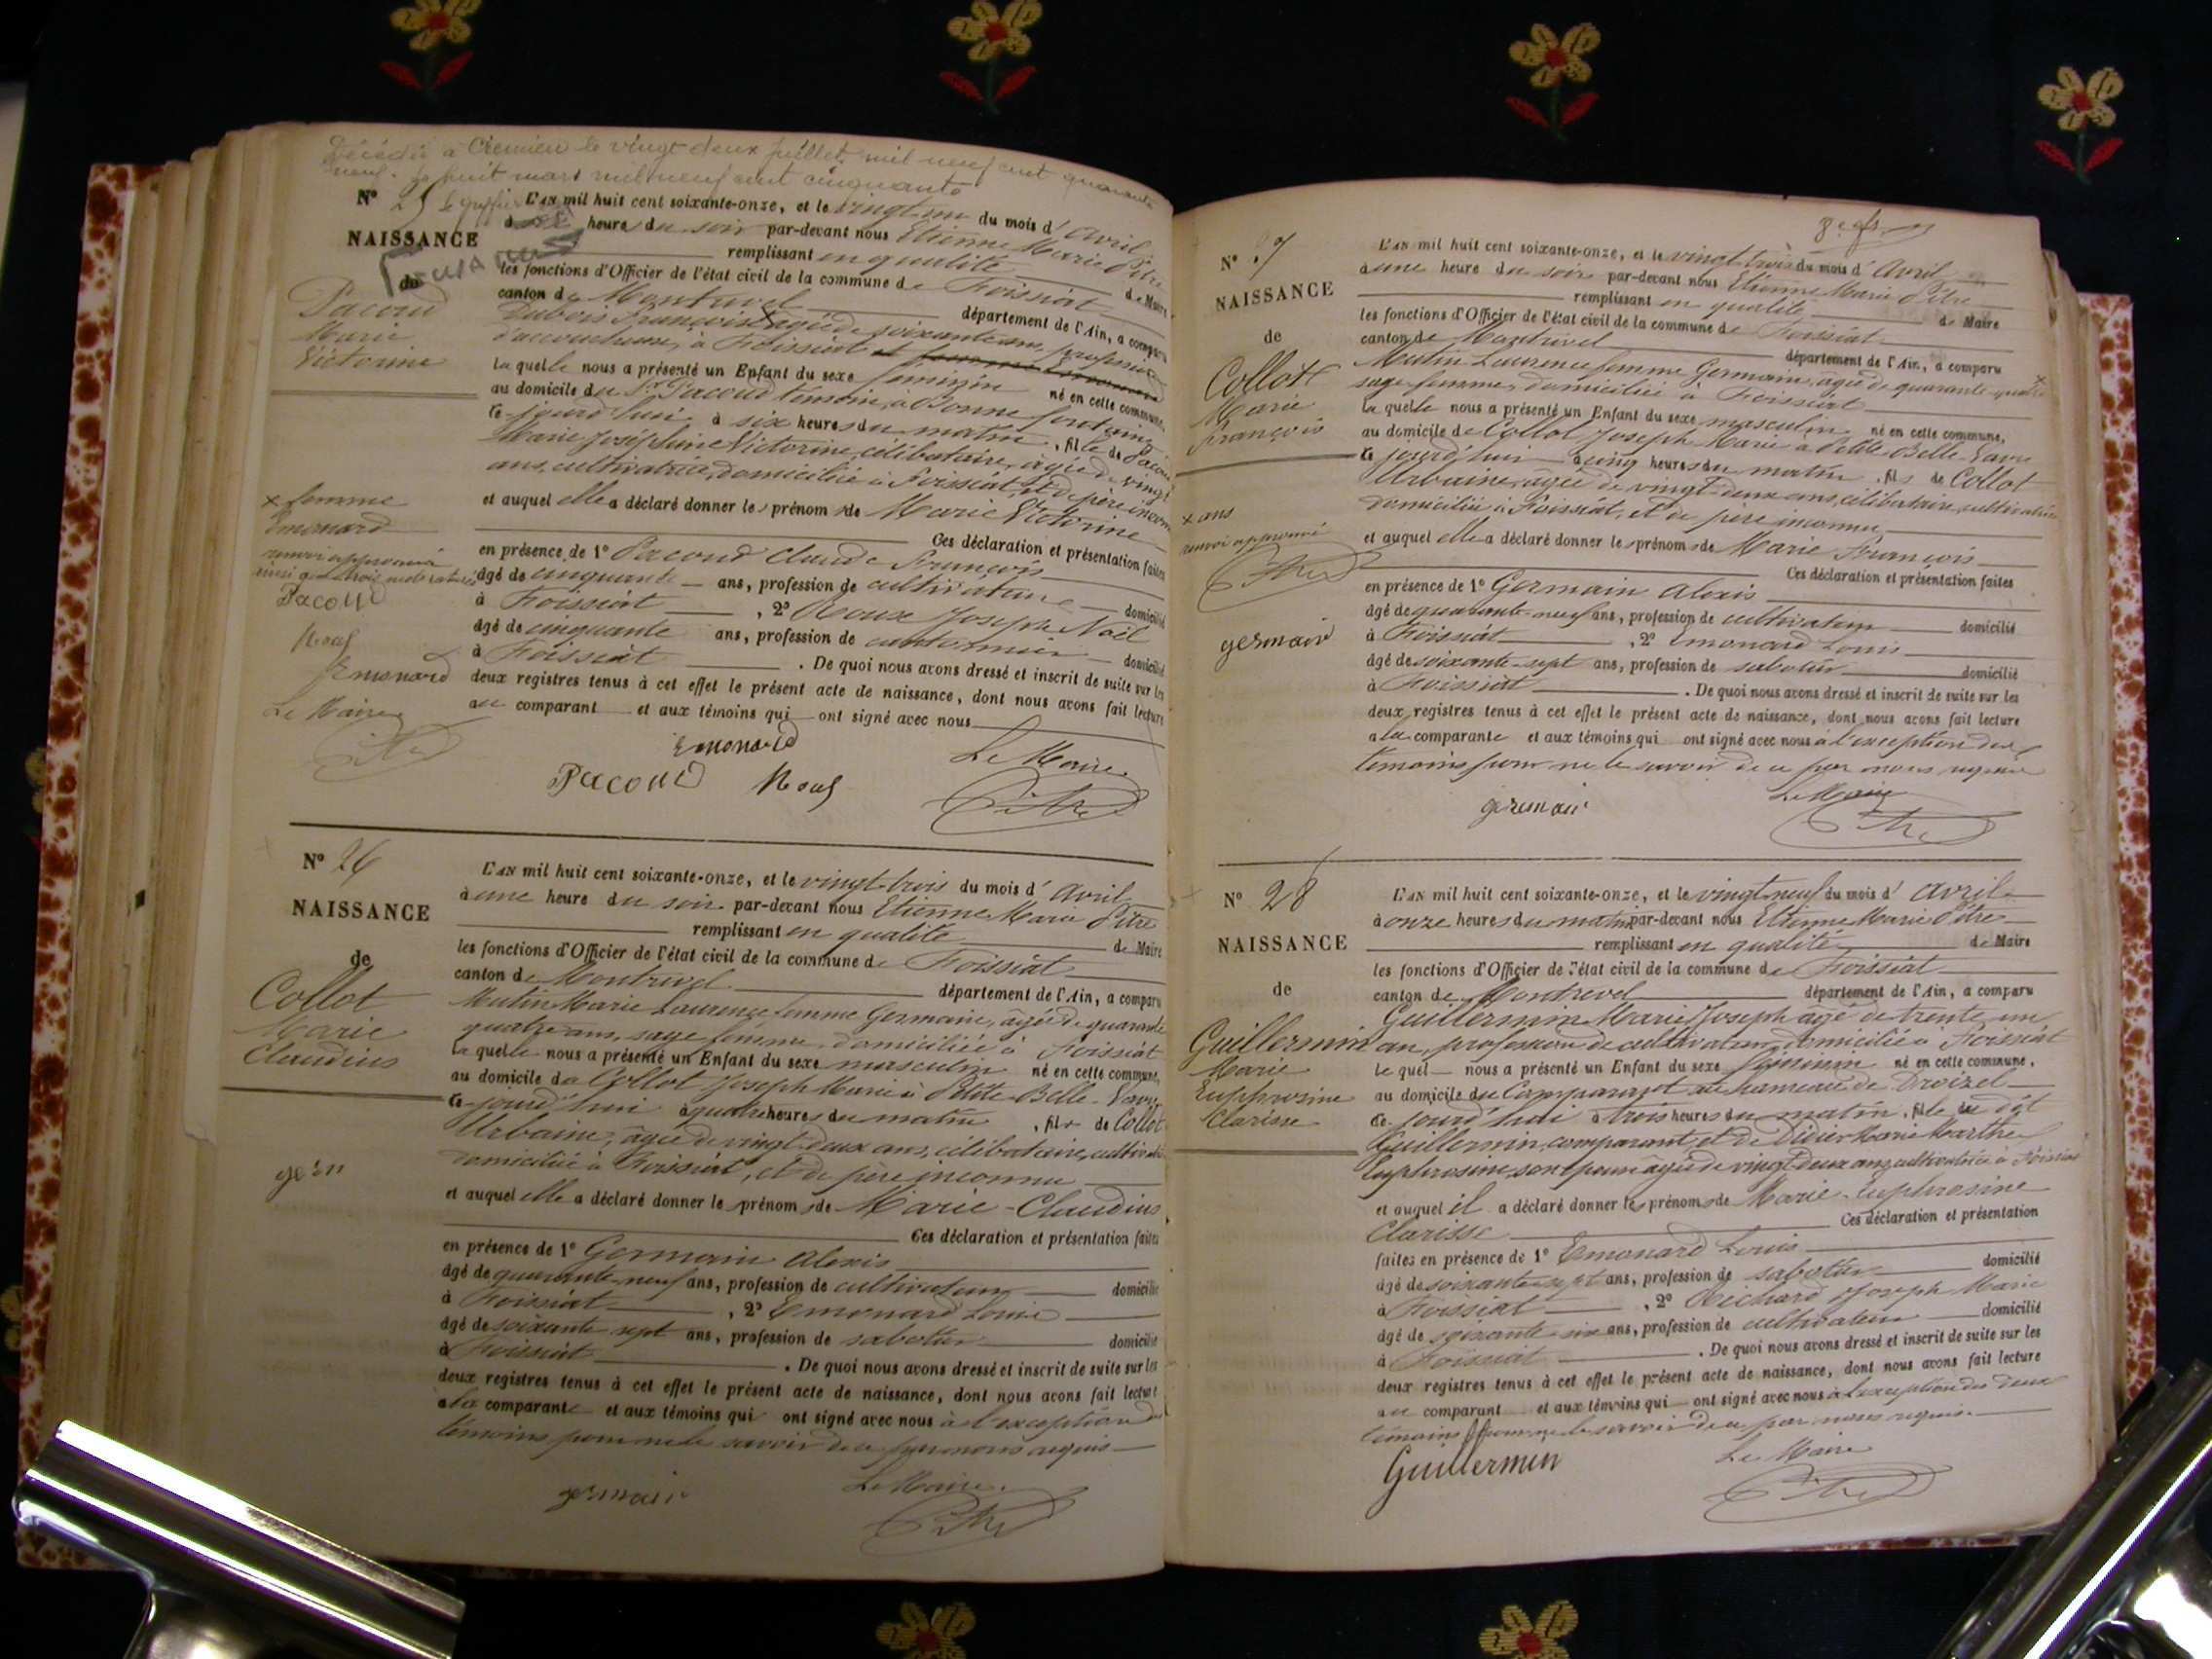 Décédée à Crémieu le vingt deux juillet mil neuf cent quarante
neuf. Le huit mars mil neuf cent cinquante
Nº 25
NAISSANCE
de
Pacoud
Marie
Victorine
L'AN mil huit cent soixante-onze, et le vingt un du mois d'Avril
à heure du soir par-devant nous Etienne Marie Pitre
remplissant en qualité de Maire
les fonctions d'Officier de l'état civil de la commune de Foissiat
canton de Montrevel département de l'Ain, a comparu
Dubois Françoise × agée de soixante ans, profession
d'accoucheuse, à Foissiat
laquelle nous a présenté un Enfant du sexe féminin né en cette commune,
au domicile du Sr Pacoud témoin, à Bonne fontaine
ce jourd'hui à six heures du matin, fille de Pacoud
Marie Joséphine Victorine, célibataire, agée de vingt
ans, cultivatrice, domiciliée à Foissiat, et de père inconnu
et auquel elle a déclaré donner les prénoms de Marie Victorine
Ces déclaration et présentation faites
en présence de 1º Pacoud Claude François
âgé de cinquante ans, profession de cultivateur domicilié
à Foissiat, 2º Roux Joseph Noël
âgé de cinquante ans, profession de cantonnier domicilié
à Foissiat. De quoi nous avons dressé et inscrit de suite sur les
deux registres tenus à cet effet le présent acte de naissance, dont nous avons fait lecture
au comparant et aux témoins qui ont signé avec nous
× femme
Emonard
renvoi approuvé
ainsi que trois mots raturés
Pacoud
Roux
Emonard
Le Maire
Pitre
Emonard
Pacoud Roux
Le Maire
Pitre
Nº 26
NAISSANCE
de
Collot
Marie
Claudius
L'AN mil huit cent soixante-onze, et le vingt-trois du mois d'Avril
à une heure du soir par-devant nous Etienne Marie Pitre
remplissant en qualité de Maire
les fonctions d'Officier de l'état civil de la commune de Foissiat
canton de Montrevel département de l'Ain, a comparu
Mutin Marie Laurence femme Germain, âgée de quarante
quatre ans, sage femme, domiciliée à Foissiat
laquelle nous a présenté un Enfant du sexe masculin né en cette commune,
au domicile de Collot Joseph Marie à Petite-Belle-Vavre
ce jourd'hui à quatre heures du matin, fils de Collot
Urbaine, âgée de vingt-deux ans, célibataire, cultivatrice
domiciliée à Foissiat, et de père inconnu
et auquel elle a déclaré donner les prénoms de Marie-Claudius
Ces déclaration et présentation faites
en présence de 1º Germain Alexis
âgé de quarante-neuf ans, profession de cultivateur domicilié
à Foissiat, 2º Emonard Louis
âgé de soixante sept ans, profession de sabotier domicilié
à Foissiat. De quoi nous avons dressé et inscrit de suite sur les
deux registres tenus à cet effet le présent acte de naissance, dont nous avons fait lecture
à la comparante et aux témoins qui ont signé avec nous à l'exception des
témoins pour ne le savoir de ce par nous requis
germain
Le Maire
Pitre
Nº 7
NAISSANCE
de
Collot
Marie
François
L'AN mil huit cent soixante-onze, et le vingt-trois du mois d'Avril
à une heure du soir par-devant nous Etienne Marie Pitre
remplissant en qualité de Maire
les fonctions d'Officier de l'état civil de la commune de Foissiat
canton de Montrevel département de l'Ain, a comparu
Mutin Laurence femme Germain, âgée de quarante quatre ×
sage-femme, domiciliée à Foissiat
laquelle nous a présenté un Enfant du sexe masculin né en cette commune,
au domicile de Collot Joseph Marie à Petite-Belle-Vavre
ce jourd'hui à cinq heures du matin, fils de Collot
Urbaine, âgée de vingt-deux ans, célibataire, cultivatrice
domiciliée à Foissiat, et de père inconnu
et auquel elle a déclaré donner les prénoms de Marie François
Ces déclaration et présentation faites
en présence de 1º Germain Alexis
âgé de quarante-neuf ans, profession de cultivateur domicilié
à Foissiat, 2º Emonard Louis
âgé de soixante-sept ans, profession de sabotier domicilié
à Foissiat. De quoi nous avons dressé et inscrit de suite sur les
deux registres tenus à cet effet le présent acte de naissance, dont nous avons fait lecture
à la comparante et aux témoins qui ont signé avec nous à l'exception des
témoins pour ne le savoir de ce par nous requis
× ans
renvoi approuvé
Pitre
germain
germain
Le Maire
Pitre
Nº 28
NAISSANCE
de
Guillermin
Marie
Euphrosine
Clarisse
L'AN mil huit cent soixante-onze, et le vingt-neuf du mois d'avril
à onze heures du matin par-devant nous Etienne Marie Pitre
remplissant en qualité de Maire
les fonctions d'Officier de l'état civil de la commune de Foissiat
canton de Montrevel département de l'Ain, a comparu
Guillermin Marie Joseph âgé de trente un
an, profession de cultivateur, domicilié à Foissiat
lequel nous a présenté un Enfant du sexe féminin né en cette commune,
au domicile du Comparant au hameau de Droizel
ce jourd'hui à trois heures du matin, fille du dit
Guillermin, comparant et de Didier Marie Marthe
Euphrosine, son épouse âgée de vingt deux ans, cultivatrice à Foissiat
et auquel il a déclaré donner les prénoms de Marie-Euphrosine
Clarisse Ces déclaration et présentation
faites en présence de 1º Emonard Louis
âgé de soixante-sept ans, profession de sabotier domicilié
à Foissiat, 2º Richard Joseph Marie
âgé de soixante six ans, profession de cultivateur domicilié
à Foissiat. De quoi nous avons dressé et inscrit de suite sur les
deux registres tenus à cet effet le présent acte de naissance, dont nous avons fait lecture
au comparant et aux témoins qui ont signé avec nous à l'exception des deux
témoins pour ne le savoir de ce par nous requis
Guillermin
Le Maire
Pitre